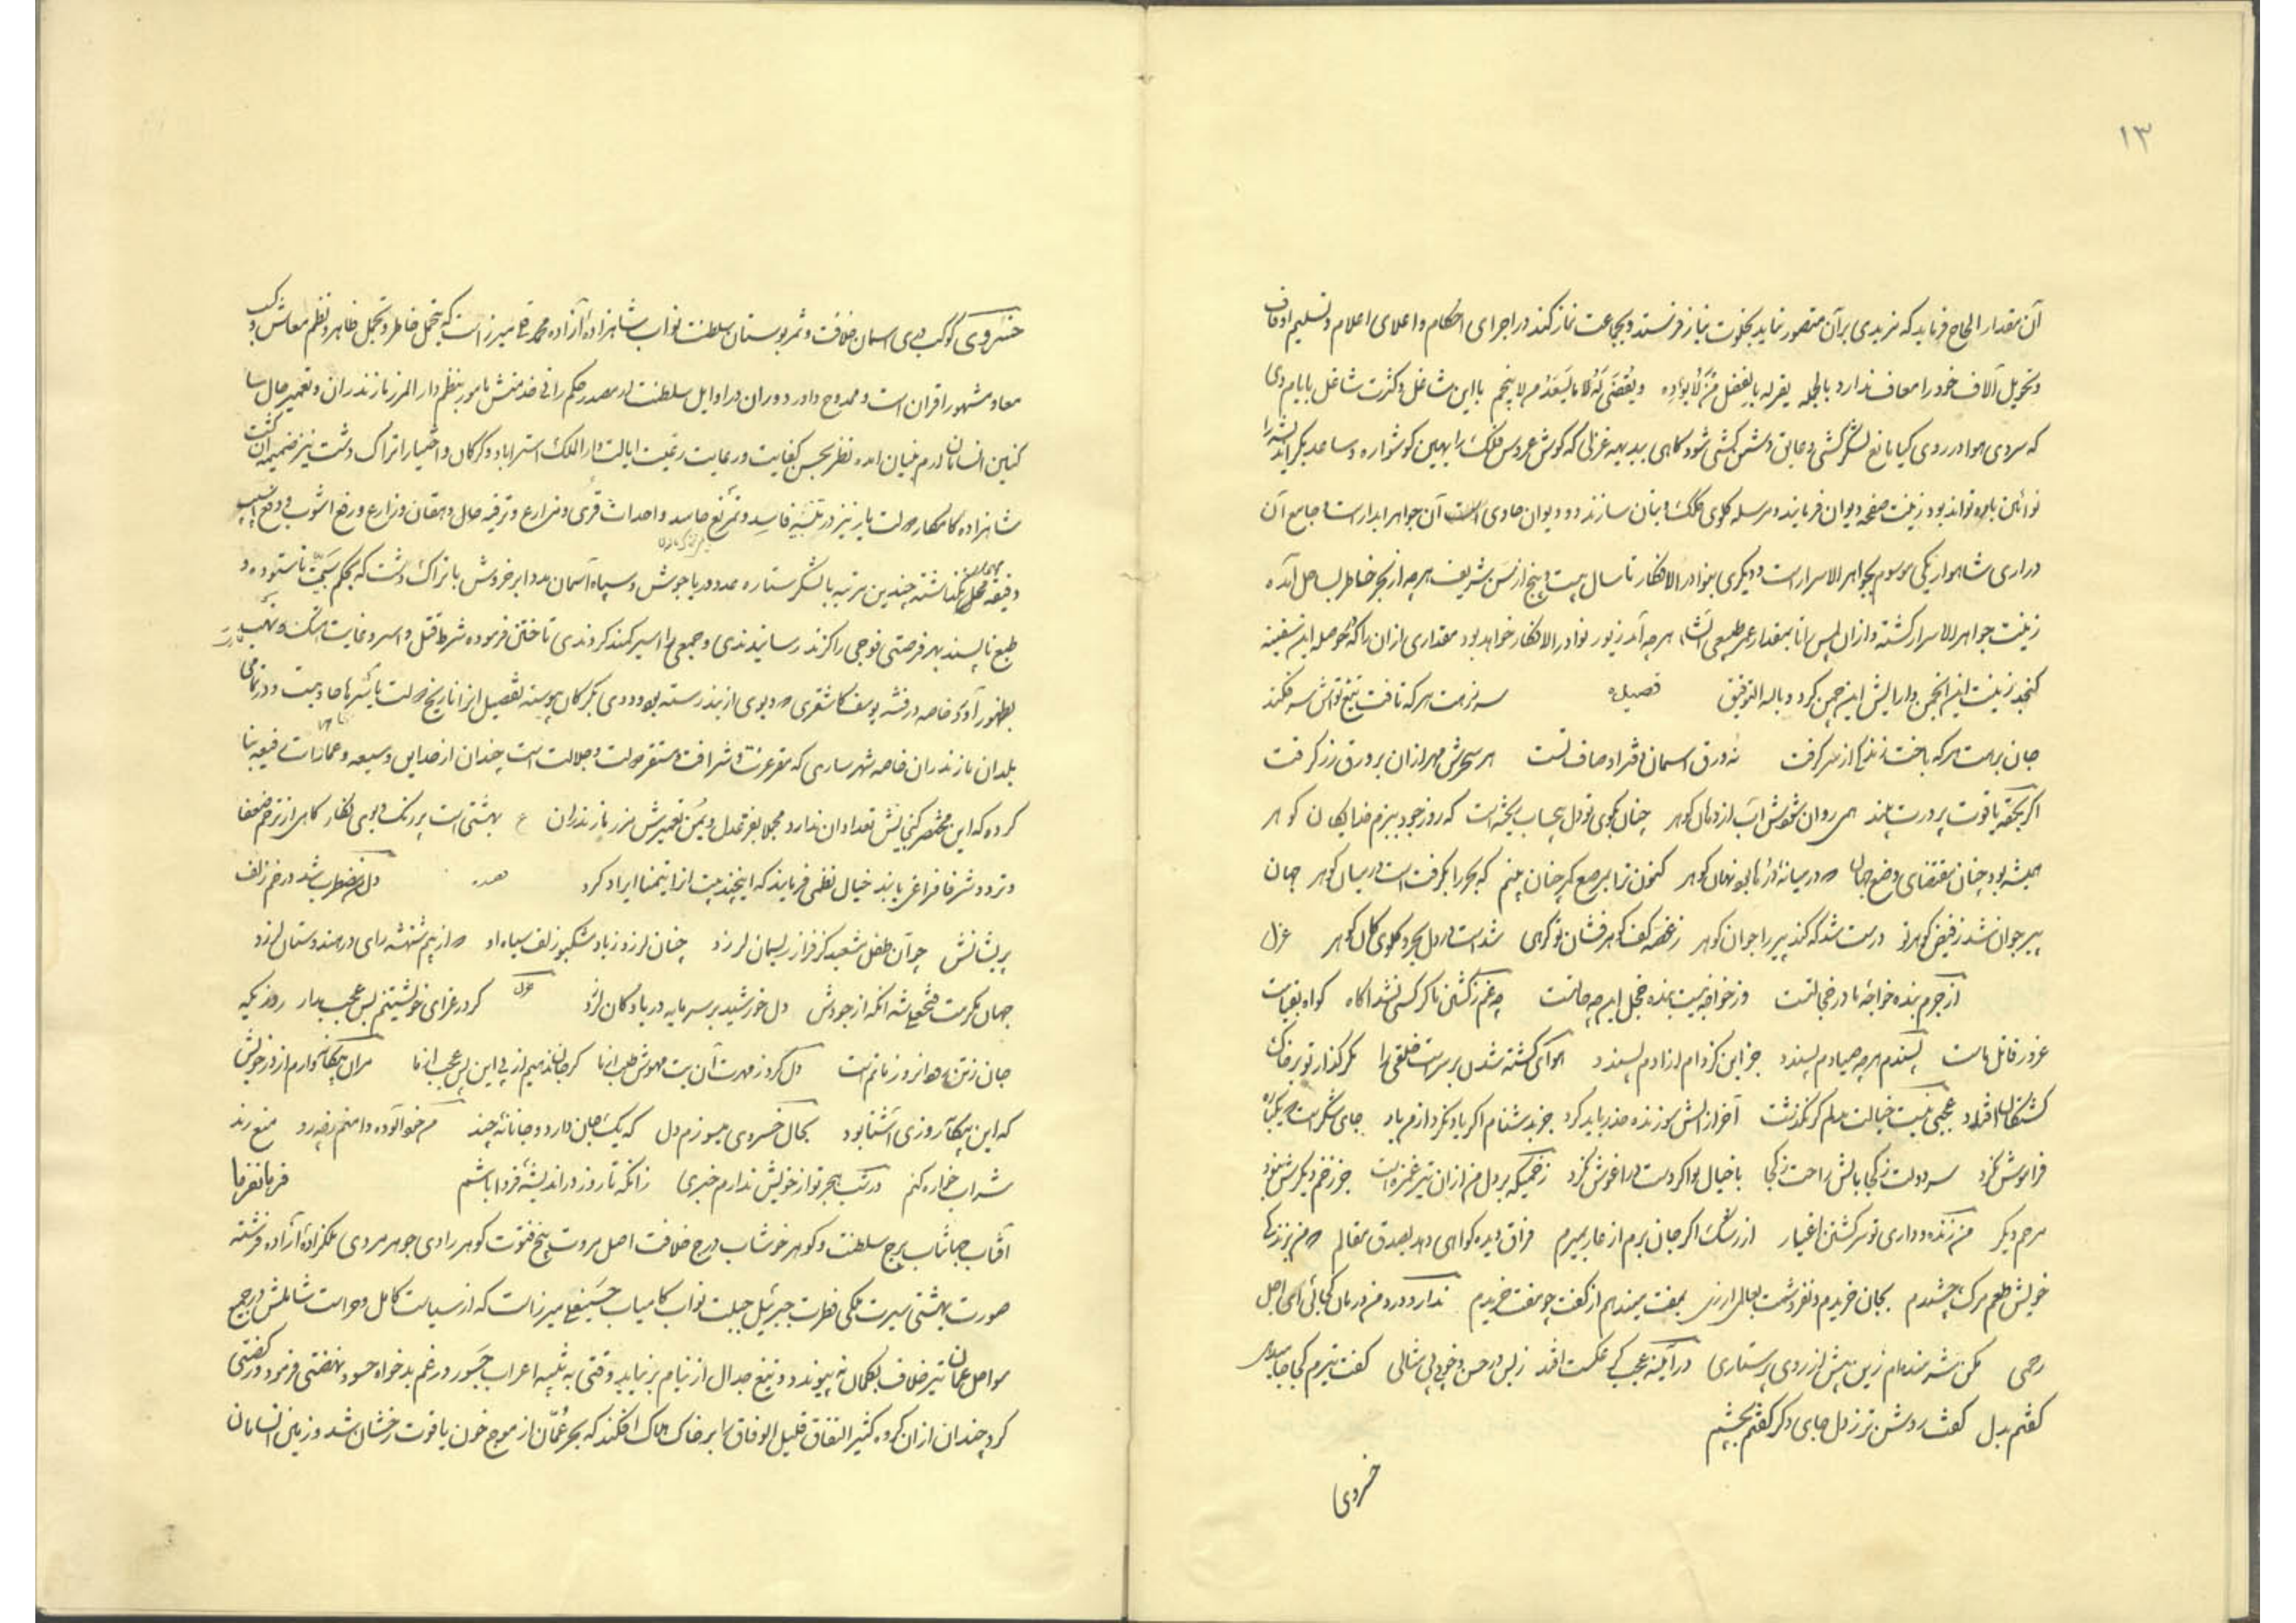 ١٣
آن مقدار الحاح فرماید که مزیدی بر آن متصور نماید بخلوت نیاز فرستد و بجماعت نماز کند در اجرای احکام و اعلای اعلام و تسلیم اوقاف
و تحویل آلاف خود را معاف ندارد بالجمله یقر له بالفضل من لا یواده و یقضی له بالسعد من لا ینجم با این مشاغل و کثرت شاغل بایام دی
که سردی هوا در روی گیا مانع لشکر کشی و عایق دشمن کشی شود کاهی ببدیهه غزلی که کوش عروس فلک را بهین کوشواره و ساعد بکر اندیشه را
نوآئین یاره تواند بود زینت صفحه دیوان فرمایند و مرسله کلوی کلک و بنان سازند دو دیوان حاوی آن جواهر ابدار است و جامع آن
دراری شاهوار یکی موسوم بجواهر الاسرار است و دیکری بنوادر الافکار تا سال بیست و پنج از سن شریف هر چه از بحر خاطر بساحل آمده
زینت جواهر الاسرار کشته و از آن پس تا بمقدار عمر طبیعی انشاء هر چه آید زیور نوادر الافکار خواهد بود مقداری از آن را که حوصله این سفینه
کنجد زینت این انجمن و آرایش این چمن کرد و بالله التوفیق قصیده سر نزهت هر که تافت تیغ تواش سر فکند
جان برهت هر که باخت زندکی از سر کرفت نه ورق اسمان دفتر اوصاف تست هر سحرش مهر از آن بر ورق زر کرفت
اکر بحقه یاقوت پرورت بیند همی روان شودش آب از دهان کوهر چنان بکوی تو دل بیحساب ریخته است که روز جود ببزم خدایکان کوهر
همیشه بود چنان مقتضای وضع جهان که در میانه دریا بود نهان کوهر کنون ترا بمرصع کمر چنان بینم که بحر را بکرفت است در میان کوهر جهان
پیر جوان شد ز فیض کوهر تو درست شد که کند پیر را جوان کوهر ز غصه کف کوهر فشان تو کوئی شد است در دل بحر و کلوی کان کوهر غزل
از جرم بنده خواجه ما در خجالتست وز خواجه نیست بنده خجل این چه حالتست چه غم ز کشتن ما کر کسی نشد اکاه کواه
غرور قاتل ماست پسندم هر چه صیادم پسندد جز این کز دام ازادم پسندد هوای کشته شدن بر سر است خلقی را مکر کذار تو بر خاک
کشتکان افتاد عجبی نیست خیالت بدلم کر نکذشت آخر از آتش سوزنده حذر باید کرد جز بدشنام اکر یاد نکرد از من یاد جای شکر است که یکباره
فراموش نکرد سر دولت ز کجا بالش راحت ز کجا با خیال تو اکر دست در اغوش نکرد زخمیکه بر دل من از آن تیر غمزه است جز زخم دیکرش نبود
مرهم دیکر من زنده و داری تو سر کشتن اغیار از رشک اکر جان نبرم از عار بمیرم فراق دیده کواهی دهد بصدق مقالم که من بزندکی
خویش طعم مرک چشیدم بجان خریدم و نفروشمت بعالم ارزی بمفت میندهم از کفت چو مفت خریدم ندارد درد من درمان کجائی ای اجل
رحمی مکن شرمنده‌ام زین بیش از روی پرستاری در آینه عجب کر عکست افتد ز بس در حسن و خوبی بی مثالی کفت تیرم کجا جا میدهی
کفتم بدل کفت روشن تر ز دل جای دکر کفتم بچشم
خسروی
خسروی کوکب دری اسمان خلافت و ثمر بوستان سلطنت نواب شاهزاده آزاده محمد قلی میرزا است که بتحمل خاطر و تجمل ظاهر و نظم معاش و کسب
معاد مشهور اقران است و ممدوح داور دوران در اوایل سلطنت از مصدر حکم رانی خدمتش مامور بنظم دار المرز مازندران و تعمیر حال
نظر بحسن کفایت و رعایت رعیت ایالت دار الملک استراباد و کرکان و اختیار اتراک دشت نیز ضمیمه آن کشت
شاهزاده کامکار دولت یار نیز در تنبیه فاسد و تمزیع حاسد و احداث قری و مزارع و ترفیه حال دهقان و زارع و رفع اشوب و دفع
دقیقه مهمل نکذاشته چندین مرتبه با لشکر ستاره عدد دریا جوش و سپاه آسمان مدد ابر خروش با تراک دشت که بحکم سجیت ناستوده و
طبع ناپسند بهر فرصتی فوجی را کزند رسانیدندی و جمعی را اسیر کمند کردندی تاختن فرموده شرط قتل و اسر و غایت فتک و نهب
بظهور آورد خاصه در فتنه یوسف کاشغری که دیوی از بند رسته بود و ددی بکرکان پیوسته تفصیل انرا تاریخ دولت باسرها حاویست و در تمامی
بلدان مازندران خاصه شهر ساری که مقر عزت و شرافت و مستقر دولت و جلالت است چندان از حدایق وسیعه و عمارات رفیعه بنا
کرده که این مختصر کنجایش تعداد ان ندارد مجملا بفر عدل و یمن تعمیرش مرز مازندران ع بهشتی است پر رنک و بوی نکار کاهی از ترفیه ضعفا
و تردد شرفا فراغی یابند خیال نظمی فرمایند که اینچند بیت از انها تیمنا ایراد کرد دل من مضطرب باشد در خم زلف
پریشانش چو آن طفل مشعبد کز فراز ریسمان لرزد چنان لرزد ز باد مشکبو زلف سیاه او که از بیم شهنشه رای در هندوستان لرزد
جهان مکرمت فتحعلی شه انکه از جودش دل خورشید بر سرمایه دریا و کان لرزد غزل کر در عزای خویشتنم بس عجب مدار روزیکه
جان ز تن رود انروز ماتم است دل کرد ز مهرت آن بت مهوش طلب از ما کر جان ندهیم از پی این پس عجب از ما مران بیکانه‌وارم از در خویش
که این بیکانه روزی آشنا بود بحال خسروی میسوزم دل که یک جان دارد و جانانه چند من خود آلوده دامنم ز چه رو منع رند
شراب خواره کنم در تب هجر تو از خویش ندارم خبری زانکه تا روز در اندیشه فردا باشم فرمانفرما
آفتاب جهانتاب برج سلطنت و کوهر خوشاب درج خلافت اصل مروت بیخ فتوت کوهر رادی جوهر مردی ملکزاده آزاده فرشته
صورت بهشتی سیرت ملکی فطرت جبرئیل جبلت نواب کامیاب حسینعلی میرزا است که از سیاست کامل و حراست شاملش در جمیع
سواحل عمان تیر خلاف بکمان نه پیوندد و تیغ جدال از نیام بر نیاید وقتی به تنبیه اعراب جسور و رغم بدخواه حسود نهضتی فرمود و رکضتی
کرد چندان از ان کروه کثیر النفاق قلیل الوفاق را بر خاک هلاک افکند که بحر عمان از موج خون یاقوت رخشان شد و زمین